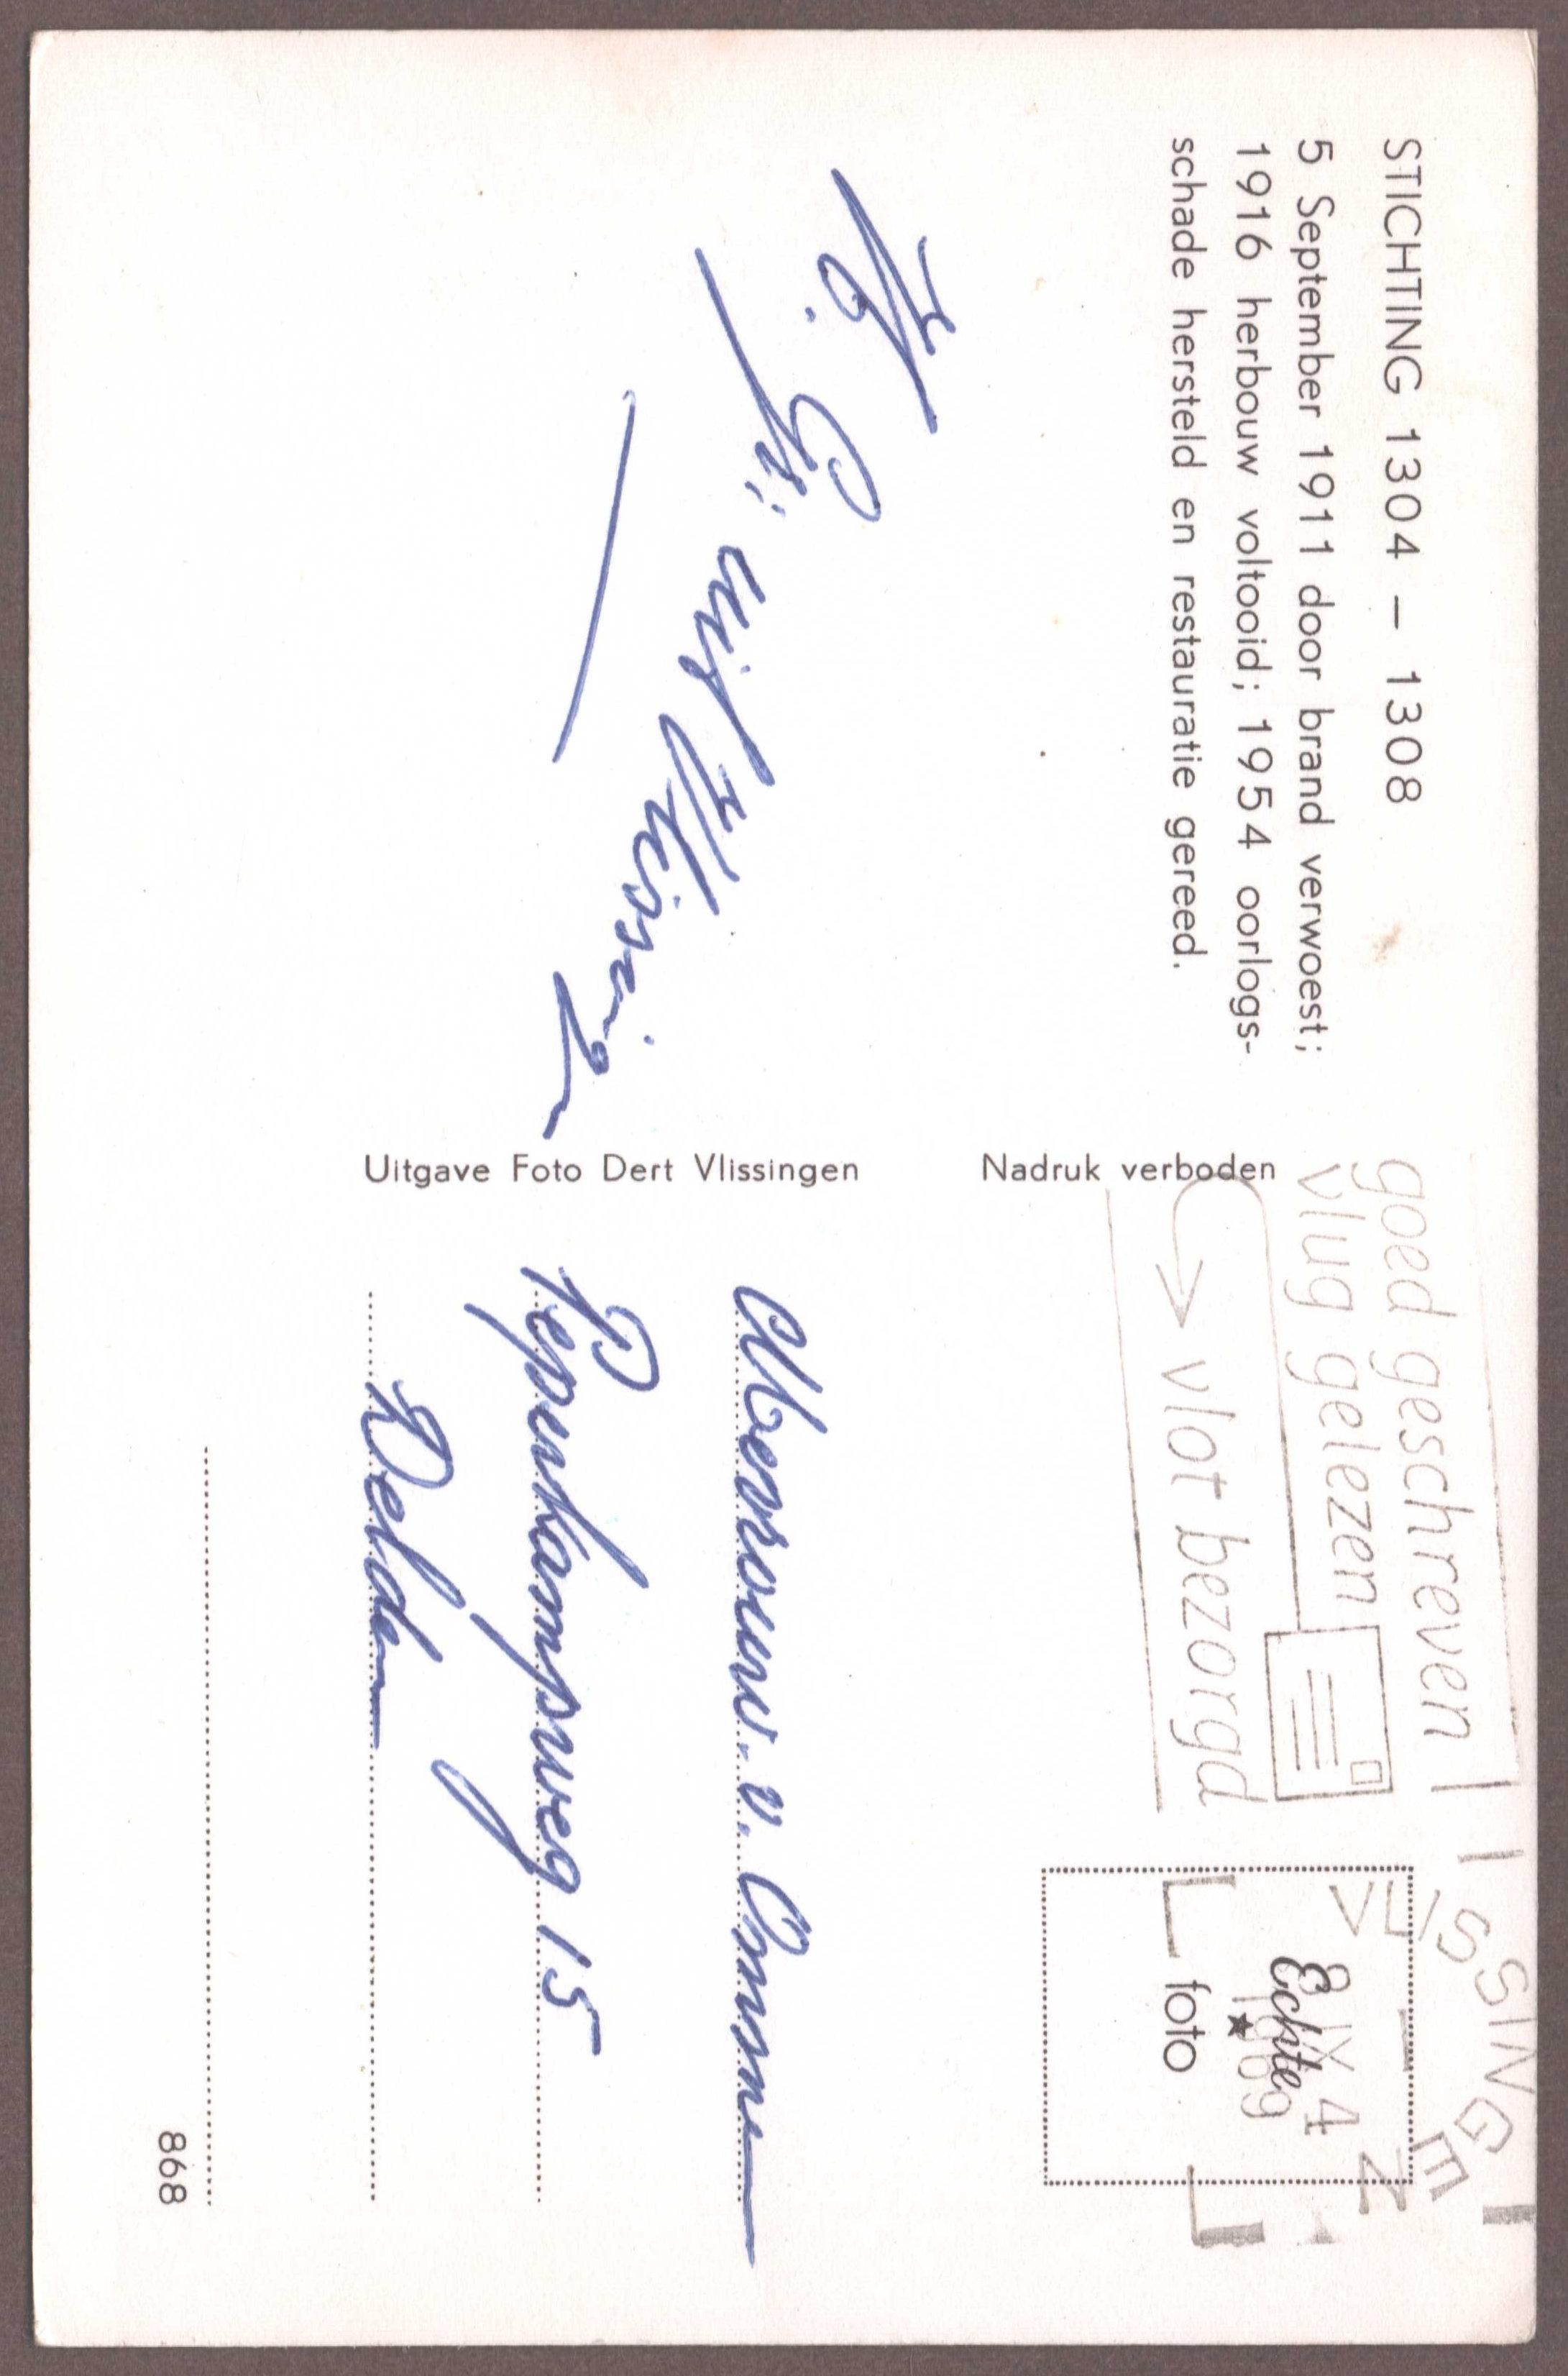 STICHTING 1304 – 1308
5 September 1911 door brand verwoest;
1916 herbouw voltooid; 1954 oorlogs-
schade hersteld en restauratie gereed.
uit Vlissingen
Uitgave Foto Dert Vlissingen
Nadruk verboden
goed geschreven
vlug gelezen
vlot bezorgd
VLISSINGEN
IX 4
1969
Echte
foto
Mevrouw. v. Ommen
Pepenkampweg 15
Delden
868